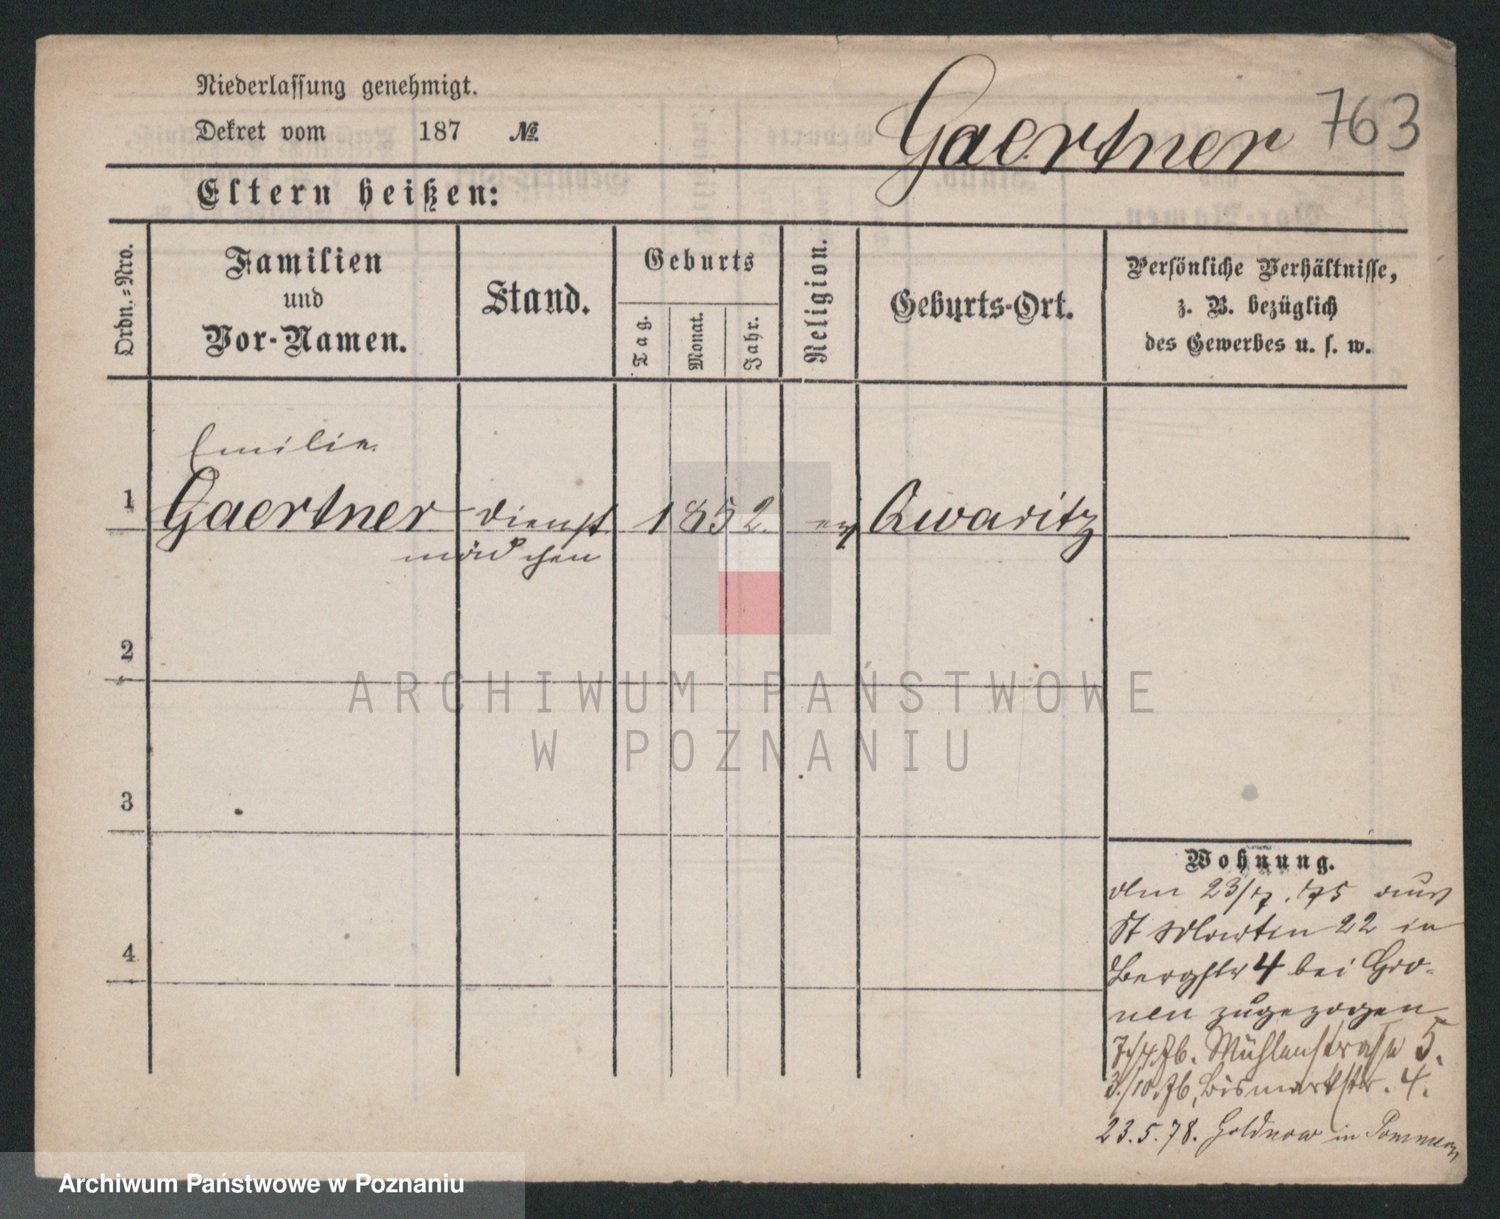 Niederlassung genehmigt.
Dekret vom 187 №
Gaertner 763
Eltern heißen:
Ordn.-Nro.
Familien
und
Vor-Namen.
Stand.
Geburts
Tag.
Monat.
Jahr.
Religion.
Geburts-Ort.
Persönliche Verhältnisse,
z. B. bezüglich
des Gewerbes u. s. w.
Emilie
1 Gaertner Dienst 1852. ev Qwaritz
mädchen
2
3
4
Wohnung.
den 23/7.75 aus
St Martin 22 in
Bergstr 4 bei Gro-
nen zugezogen
7/4.76. Mühlenstrasse 5.
3./10.76, Bismarkstr. 4.
23.5.78. Goldnow in Pommern
ARCHIWUM PAŃSTWOWE
W POZNANIU
Archiwum Państwowe w Poznaniu